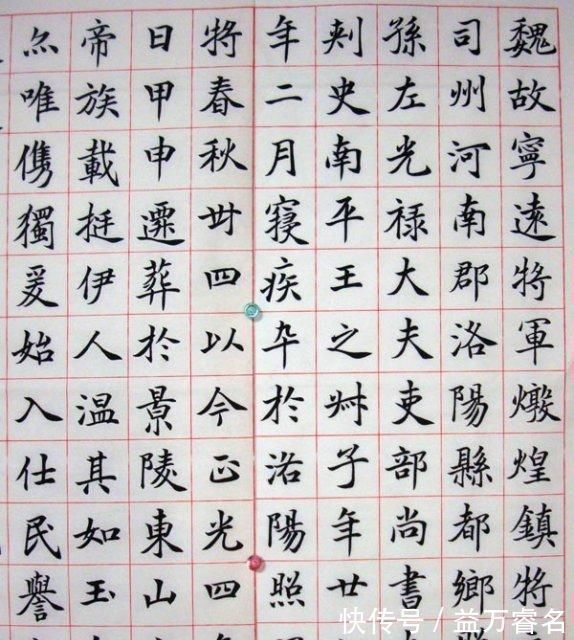 魏故寧遠將軍燉煌鎮將
司州河南郡洛陽縣都鄉
孫左光禄大夫吏部尚書
刺史南平王之叔子年廿
年二月寢疾卒於洛陽照
將春秋丗四以今正光四
日甲申遷葬於景陵東山
帝族載挺伊人温其如玉
亦唯儁獨爰始入仕民譽
快传号／益万睿名